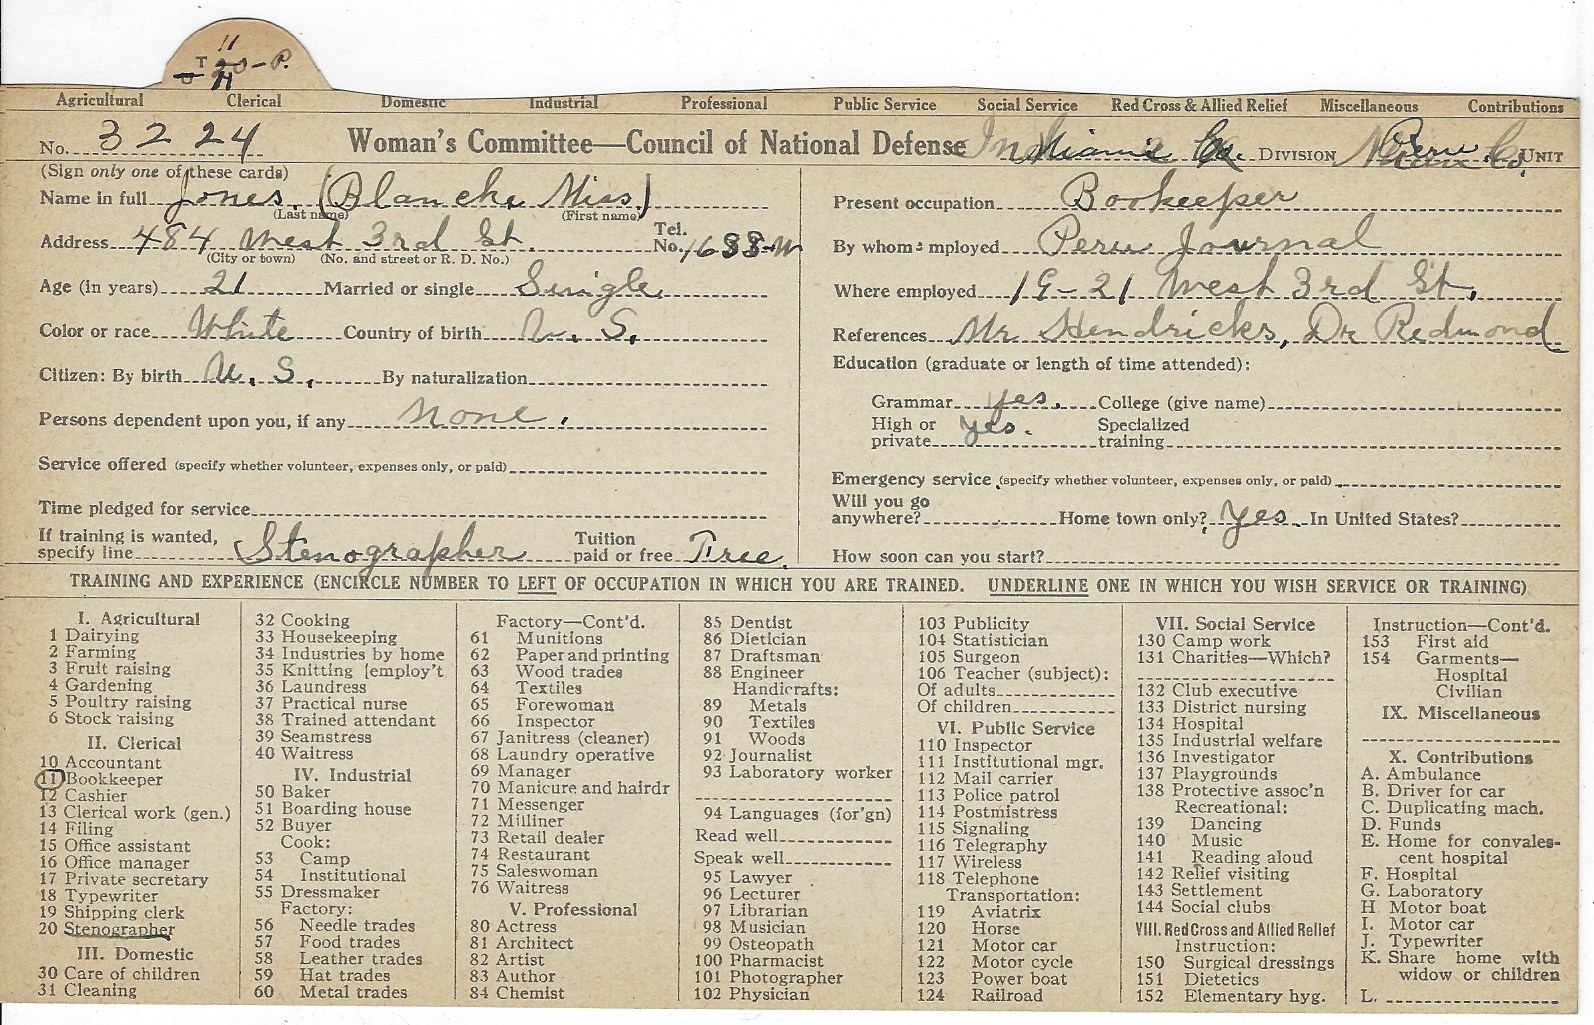 11
T 20-P.
U H
Agricultural Clerical Domestic Industrial Professional Public Service Social Service Red Cross & Allied Relief Miscellaneous Contributions
No. 3224 Woman's Committee—Council of National Defense Miami Co. DIVISION Peru UNIT
(Sign only one of these cards)
Name in full Jones. (Blanche Miss.)
(Last name) (First name)
Address 484 West 3rd St. Tel. No. 1688-W
(City or town) (No. and street or R. D. No.)
Age (in years) 21 Married or single Single
Color or race White Country of birth U. S.
Citizen: By birth U. S. By naturalization
Persons dependent upon you, if any none.
Service offered (specify whether volunteer, expenses only, or paid)
Time pledged for service
If training is wanted, specify line Stenographer Tuition paid or free Free.
Present occupation Bookeeper
By whom mployed Peru Journal
Where employed 19-21 West 3rd St.
References Mr Hendricks, Dr Redmond
Education (graduate or length of time attended):
Grammar yes. College (give name)
High or private yes. Specialized training
Emergency service (specify whether volunteer, expenses only, or paid)
Will you go anywhere? Home town only? yes In United States?
How soon can you start?
TRAINING AND EXPERIENCE (ENCIRCLE NUMBER TO LEFT OF OCCUPATION IN WHICH YOU ARE TRAINED. UNDERLINE ONE IN WHICH YOU WISH SERVICE OR TRAINING)
I. Agricultural
1 Dairying
2 Farming
3 Fruit raising
4 Gardening
5 Poultry raising
6 Stock raising
II. Clerical
10 Accountant
11 Bookkeeper
12 Cashier
13 Clerical work (gen.)
14 Filing
15 Office assistant
16 Office manager
17 Private secretary
18 Typewriter
19 Shipping clerk
20 Stenographer
III. Domestic
30 Care of children
31 Cleaning
32 Cooking
33 Housekeeping
34 Industries by home
35 Knitting [employ't
36 Laundress
37 Practical nurse
38 Trained attendant
39 Seamstress
40 Waitress
IV. Industrial
50 Baker
51 Boarding house
52 Buyer
Cook:
53 Camp
54 Institutional
55 Dressmaker
Factory:
56 Needle trades
57 Food trades
58 Leather trades
59 Hat trades
60 Metal trades
Factory—Cont'd.
61 Munitions
62 Paper and printing
63 Wood trades
64 Textiles
65 Forewoman
66 Inspector
67 Janitress (cleaner)
68 Laundry operative
69 Manager
70 Manicure and hairdr
71 Messenger
72 Milliner
73 Retail dealer
74 Restaurant
75 Saleswoman
76 Waitress
V. Professional
80 Actress
81 Architect
82 Artist
83 Author
84 Chemist
85 Dentist
86 Dietician
87 Draftsman
88 Engineer
Handicrafts:
89 Metals
90 Textiles
91 Woods
92 Journalist
93 Laboratory worker
94 Languages (for'gn)
Read well
Speak well
95 Lawyer
96 Lecturer
97 Librarian
98 Musician
99 Osteopath
100 Pharmacist
101 Photographer
102 Physician
103 Publicity
104 Statistician
105 Surgeon
106 Teacher (subject):
Of adults
Of children
VI. Public Service
110 Inspector
111 Institutional mgr.
112 Mail carrier
113 Police patrol
114 Postmistress
115 Signaling
116 Telegraphy
117 Wireless
118 Telephone
Transportation:
119 Aviatrix
120 Horse
121 Motor car
122 Motor cycle
123 Power boat
124 Railroad
VII. Social Service
130 Camp work
131 Charities—Which?
132 Club executive
133 District nursing
134 Hospital
135 Industrial welfare
136 Investigator
137 Playgrounds
138 Protective assoc'n
Recreational:
139 Dancing
140 Music
141 Reading aloud
142 Relief visiting
143 Settlement
144 Social clubs
VIII. Red Cross and Allied Relief
Instruction:
150 Surgical dressings
151 Dietetics
152 Elementary hyg.
Instruction—Cont'd.
153 First aid
154 Garments—
Hospital
Civilian
IX. Miscellaneous
X. Contributions
A. Ambulance
B. Driver for car
C. Duplicating mach.
D. Funds
E. Home for convales-
cent hospital
F. Hospital
G. Laboratory
H. Motor boat
I. Motor car
J. Typewriter
K. Share home with
widow or children
L.